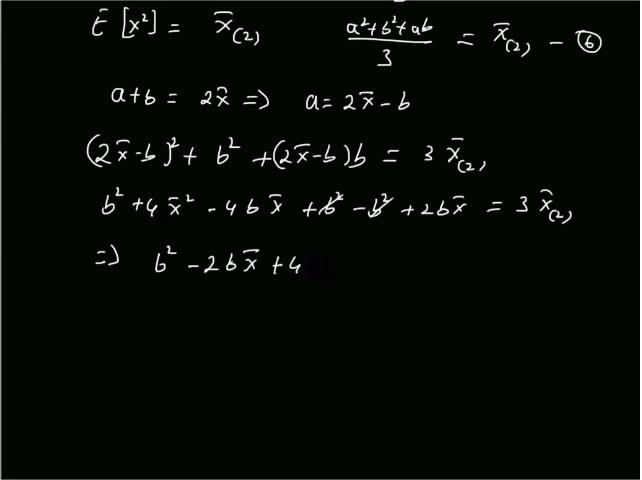 E [x²] = x̄₍₂₎   (a²+b²+ab)/3 = x̄₍₂₎ — ⑥
a+b = 2x̄ => a = 2x̄ - b
(2x̄-b)² + b² + (2x̄-b)b = 3 x̄₍₂₎
b² + 4x̄² - 4bx̄ + b² - b² + 2bx̄ = 3 x̄₍₂₎
=> b² - 2bx̄ + 4